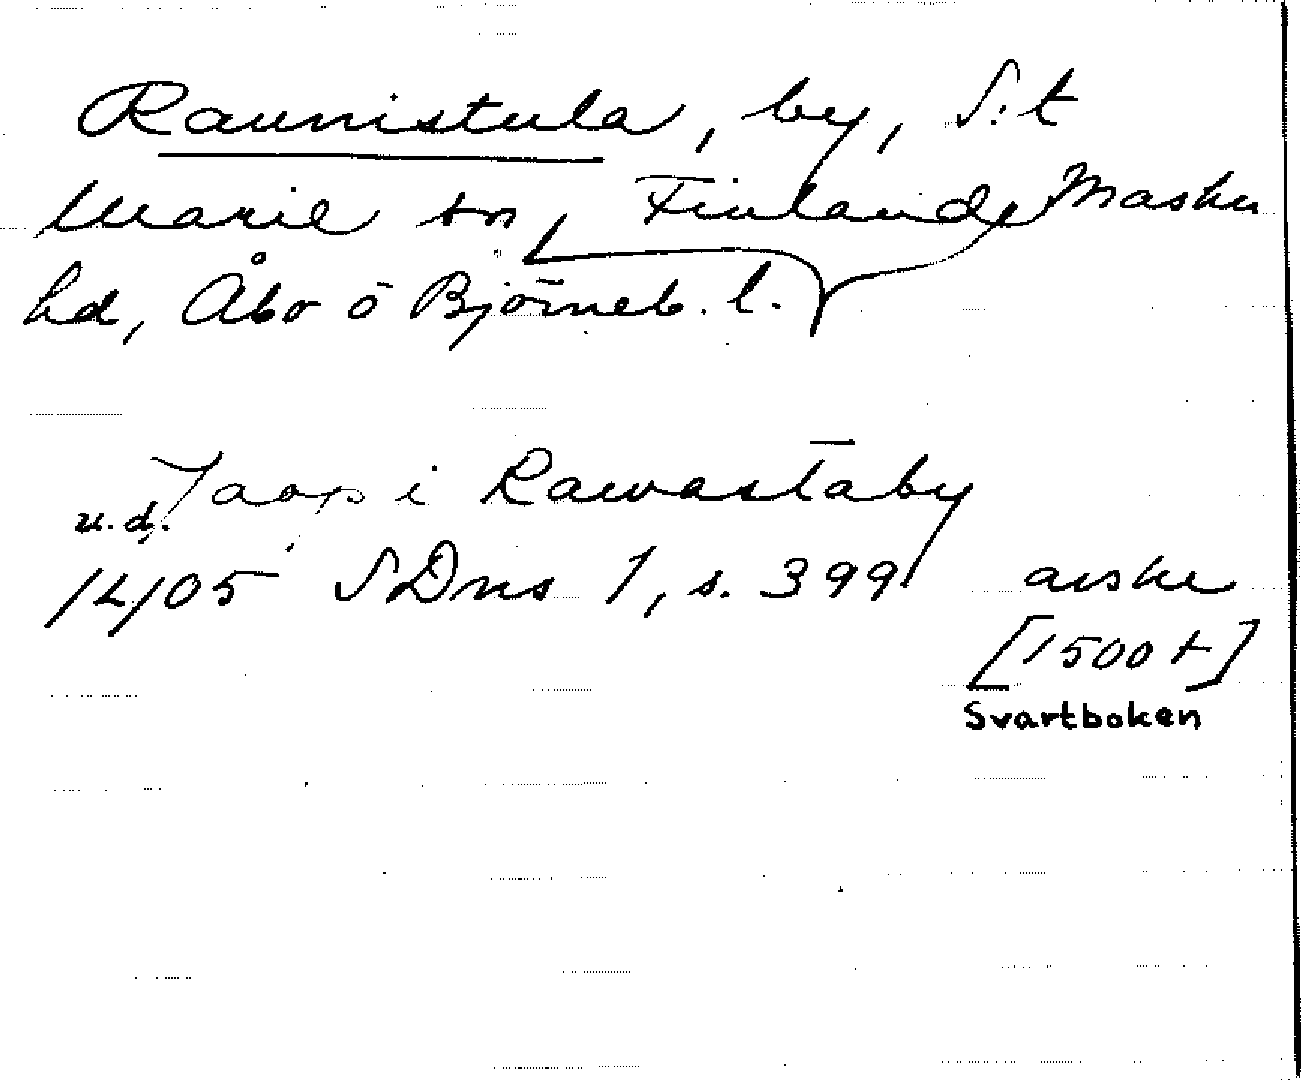 Raunistula, by, S:t
Marie sn, Finland, Masku
hd, Åbo o Björneb. l.
Jaop i Rawastaby
u.d.
1405 SDns 1, s. 399 avskr
[1500 t]
Svartboken